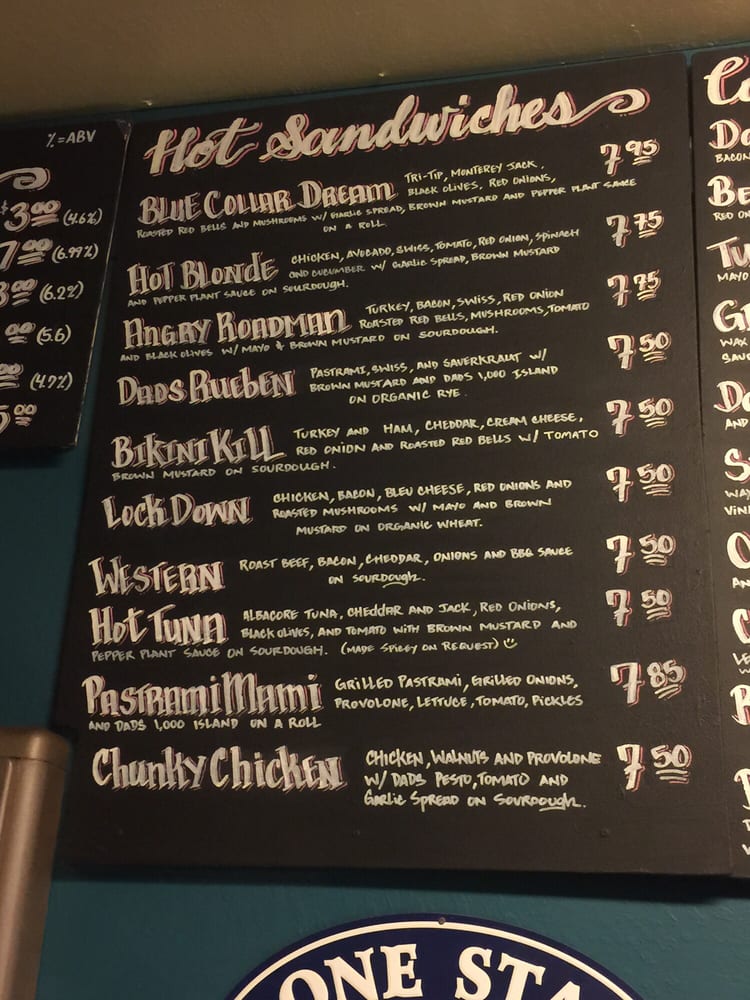 %=ABV
$3.00 (4.6%)
7.00 (6.99%)
(6.2%)
00 (5.6)
(4.9%)
00
Hot Sandwiches
BLUE COLLAR DREAM TRI-TIP, MONTEREY JACK, 7.95
BLACK OLIVES, RED ONIONS,
ROASTED RED BELLS AND MUSHROOMS W/ GARLIC SPREAD, BROWN MUSTARD AND PEPPER PLANT SAUCE
ON A ROLL.
HOT BLONDE CHICKEN, AVOCADO, SWISS, TOMATO, RED ONION, SPINACH 7.75
AND CUCUMBER W/ GARLIC SPREAD, BROWN MUSTARD
AND PEPPER PLANT SAUCE ON SOURDOUGH.
ANGRY ROADMAN TURKEY, BACON, SWISS, RED ONION 7.75
ROASTED RED BELLS, MUSHROOMS, TOMATO
AND BLACK OLIVES W/ MAYO & BROWN MUSTARD ON SOURDOUGH.
DADS RUEBEN PASTRAMI, SWISS, AND SAUERKRAUT W/ 7.50
BROWN MUSTARD AND DADS 1,000 ISLAND
ON ORGANIC RYE.
BIKINI KILL TURKEY AND HAM, CHEDDAR, CREAM CHEESE, 7.50
RED ONION AND ROASTED RED BELLS W/ TOMATO
BROWN MUSTARD ON SOURDOUGH.
LOCK DOWN CHICKEN, BACON, BLEU CHEESE, RED ONIONS AND 7.50
ROASTED MUSHROOMS W/ MAYO AND BROWN
MUSTARD ON ORGANIC WHEAT.
WESTERN ROAST BEEF, BACON, CHEDDAR, ONIONS AND BBQ SAUCE 7.50
ON SOURDOUGH.
HOT TUNA ALBACORE TUNA, CHEDDAR AND JACK, RED ONIONS, 7.50
BLACK OLIVES, AND TOMATO WITH BROWN MUSTARD AND
PEPPER PLANT SAUCE ON SOURDOUGH. (MADE SPICEY ON REQUEST)
PASTRAMI MAMI GRILLED PASTRAMI, GRILLED ONIONS, 7.85
PROVOLONE, LETTUCE, TOMATO, PICKLES
AND DADS 1,000 ISLAND ON A ROLL
Chunky Chicken CHICKEN, WALNUTS AND PROVOLONE 7.50
W/ DADS PESTO, TOMATO AND
GARLIC SPREAD ON SOURDOUGH.
BACON
RED O
MAYO
WAX
SAUC
AND
ONE STA